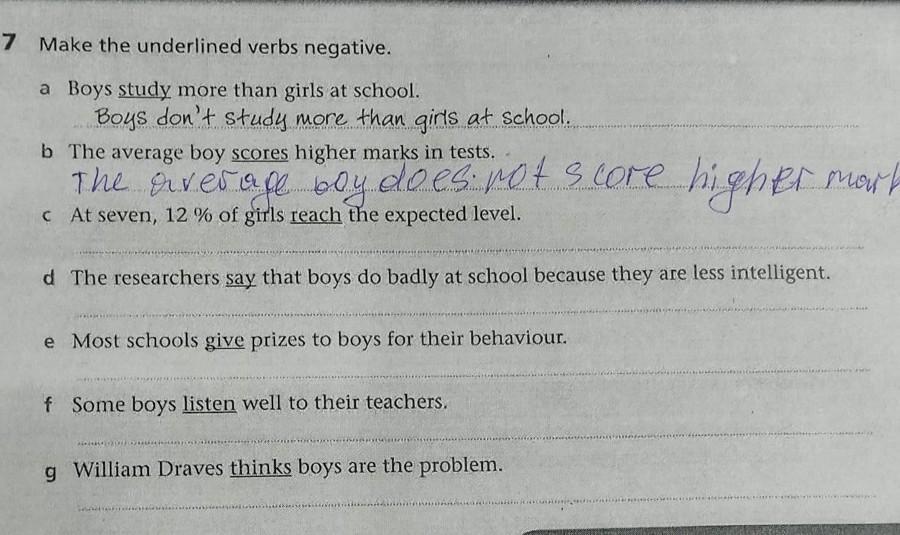 7 Make the underlined verbs negative.
a Boys study more than girls at school.
Boys don't study more than girls at school.
b The average boy scores higher marks in tests.
The average boy does not score higher mark
c At seven, 12 % of girls reach the expected level.
d The researchers say that boys do badly at school because they are less intelligent.
e Most schools give prizes to boys for their behaviour.
f Some boys listen well to their teachers.
g William Draves thinks boys are the problem.